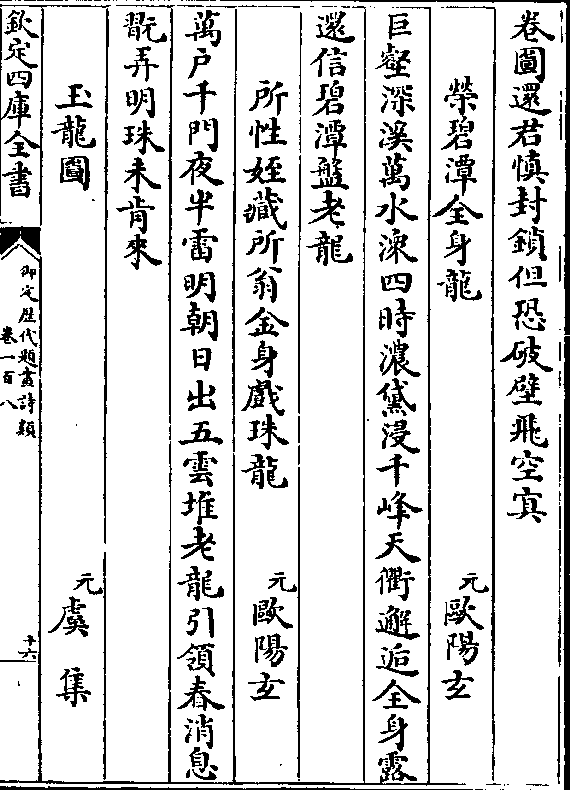 卷圖還君慎封鎖但恐破壁飛空㝠
榮碧潭全身龍
元歐陽玄
巨壑深溪萬水淙四時濃黛浸千峰天衢邂逅全身露
還信碧潭盤老龍
所性姪藏所翁全身戲珠龍
元歐陽玄
萬戸千門夜半雷明朝日出五雲堆老龍引領春消息
翫弄明珠未肯來
玉龍圖
元虞集
欽定四庫全書
御定歴代題畫詩類
卷一百八
十六